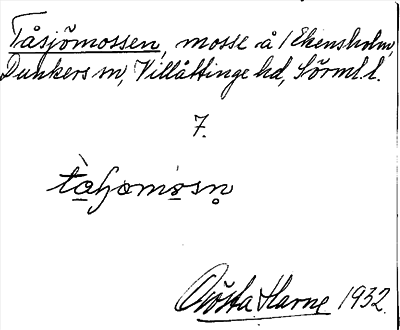 Tåsjömossen, mosse å /Ekensholm,
Dunkers sn, Villåttinge hd, Sörml. l.
7.
Gösta Harne 1932.